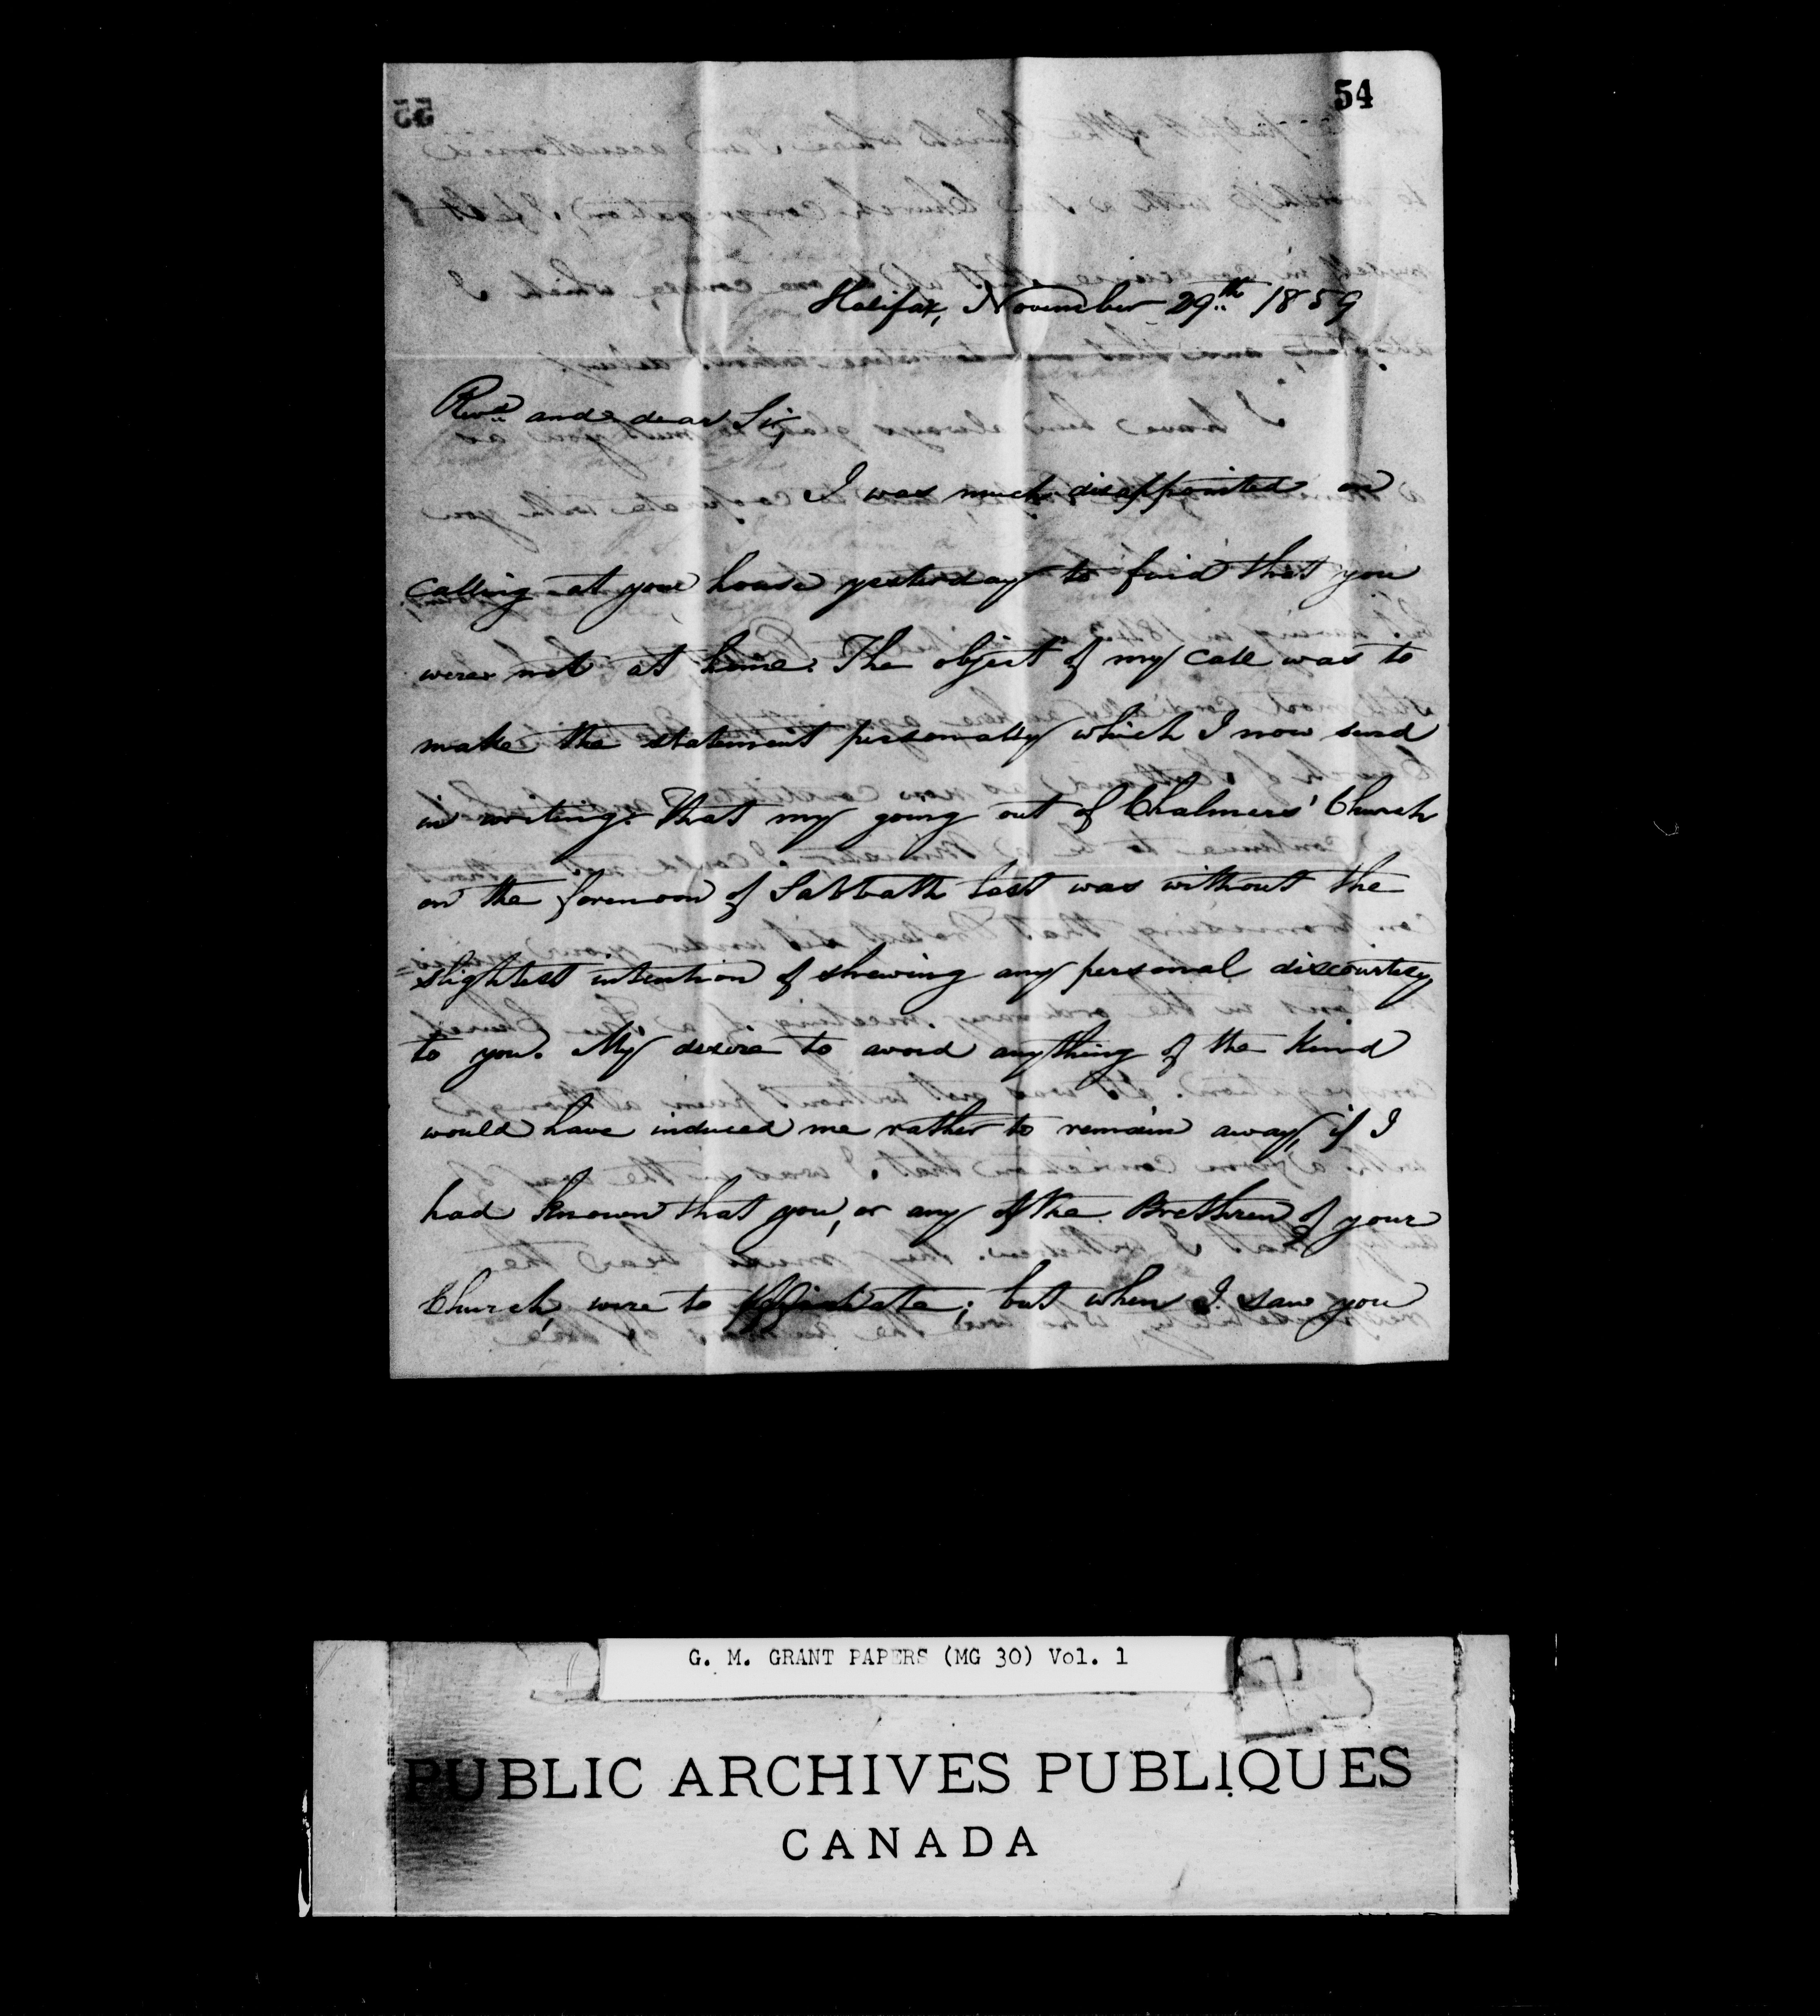 54
55
Halifax, November 29th 1859
Revd. and dear Sir,
I was much disappointed on
calling at your house yesterday to find that you
were not at home. The object of my call was to
make the statement personally which I now send
in writing. That my going out of Chalmers' Church
on the forenoon of Sabbath last was without the
slightest intention of shewing any personal discourtesy
to you. My desire to avoid anything of the kind
would have induced me rather to remain away, if I
had known that you, or any of the Brethren of your
Church, were to officiate; but when I saw you
G. M. GRANT PAPERS (MG 30) Vol. 1
PUBLIC ARCHIVES PUBLIQUES
CANADA